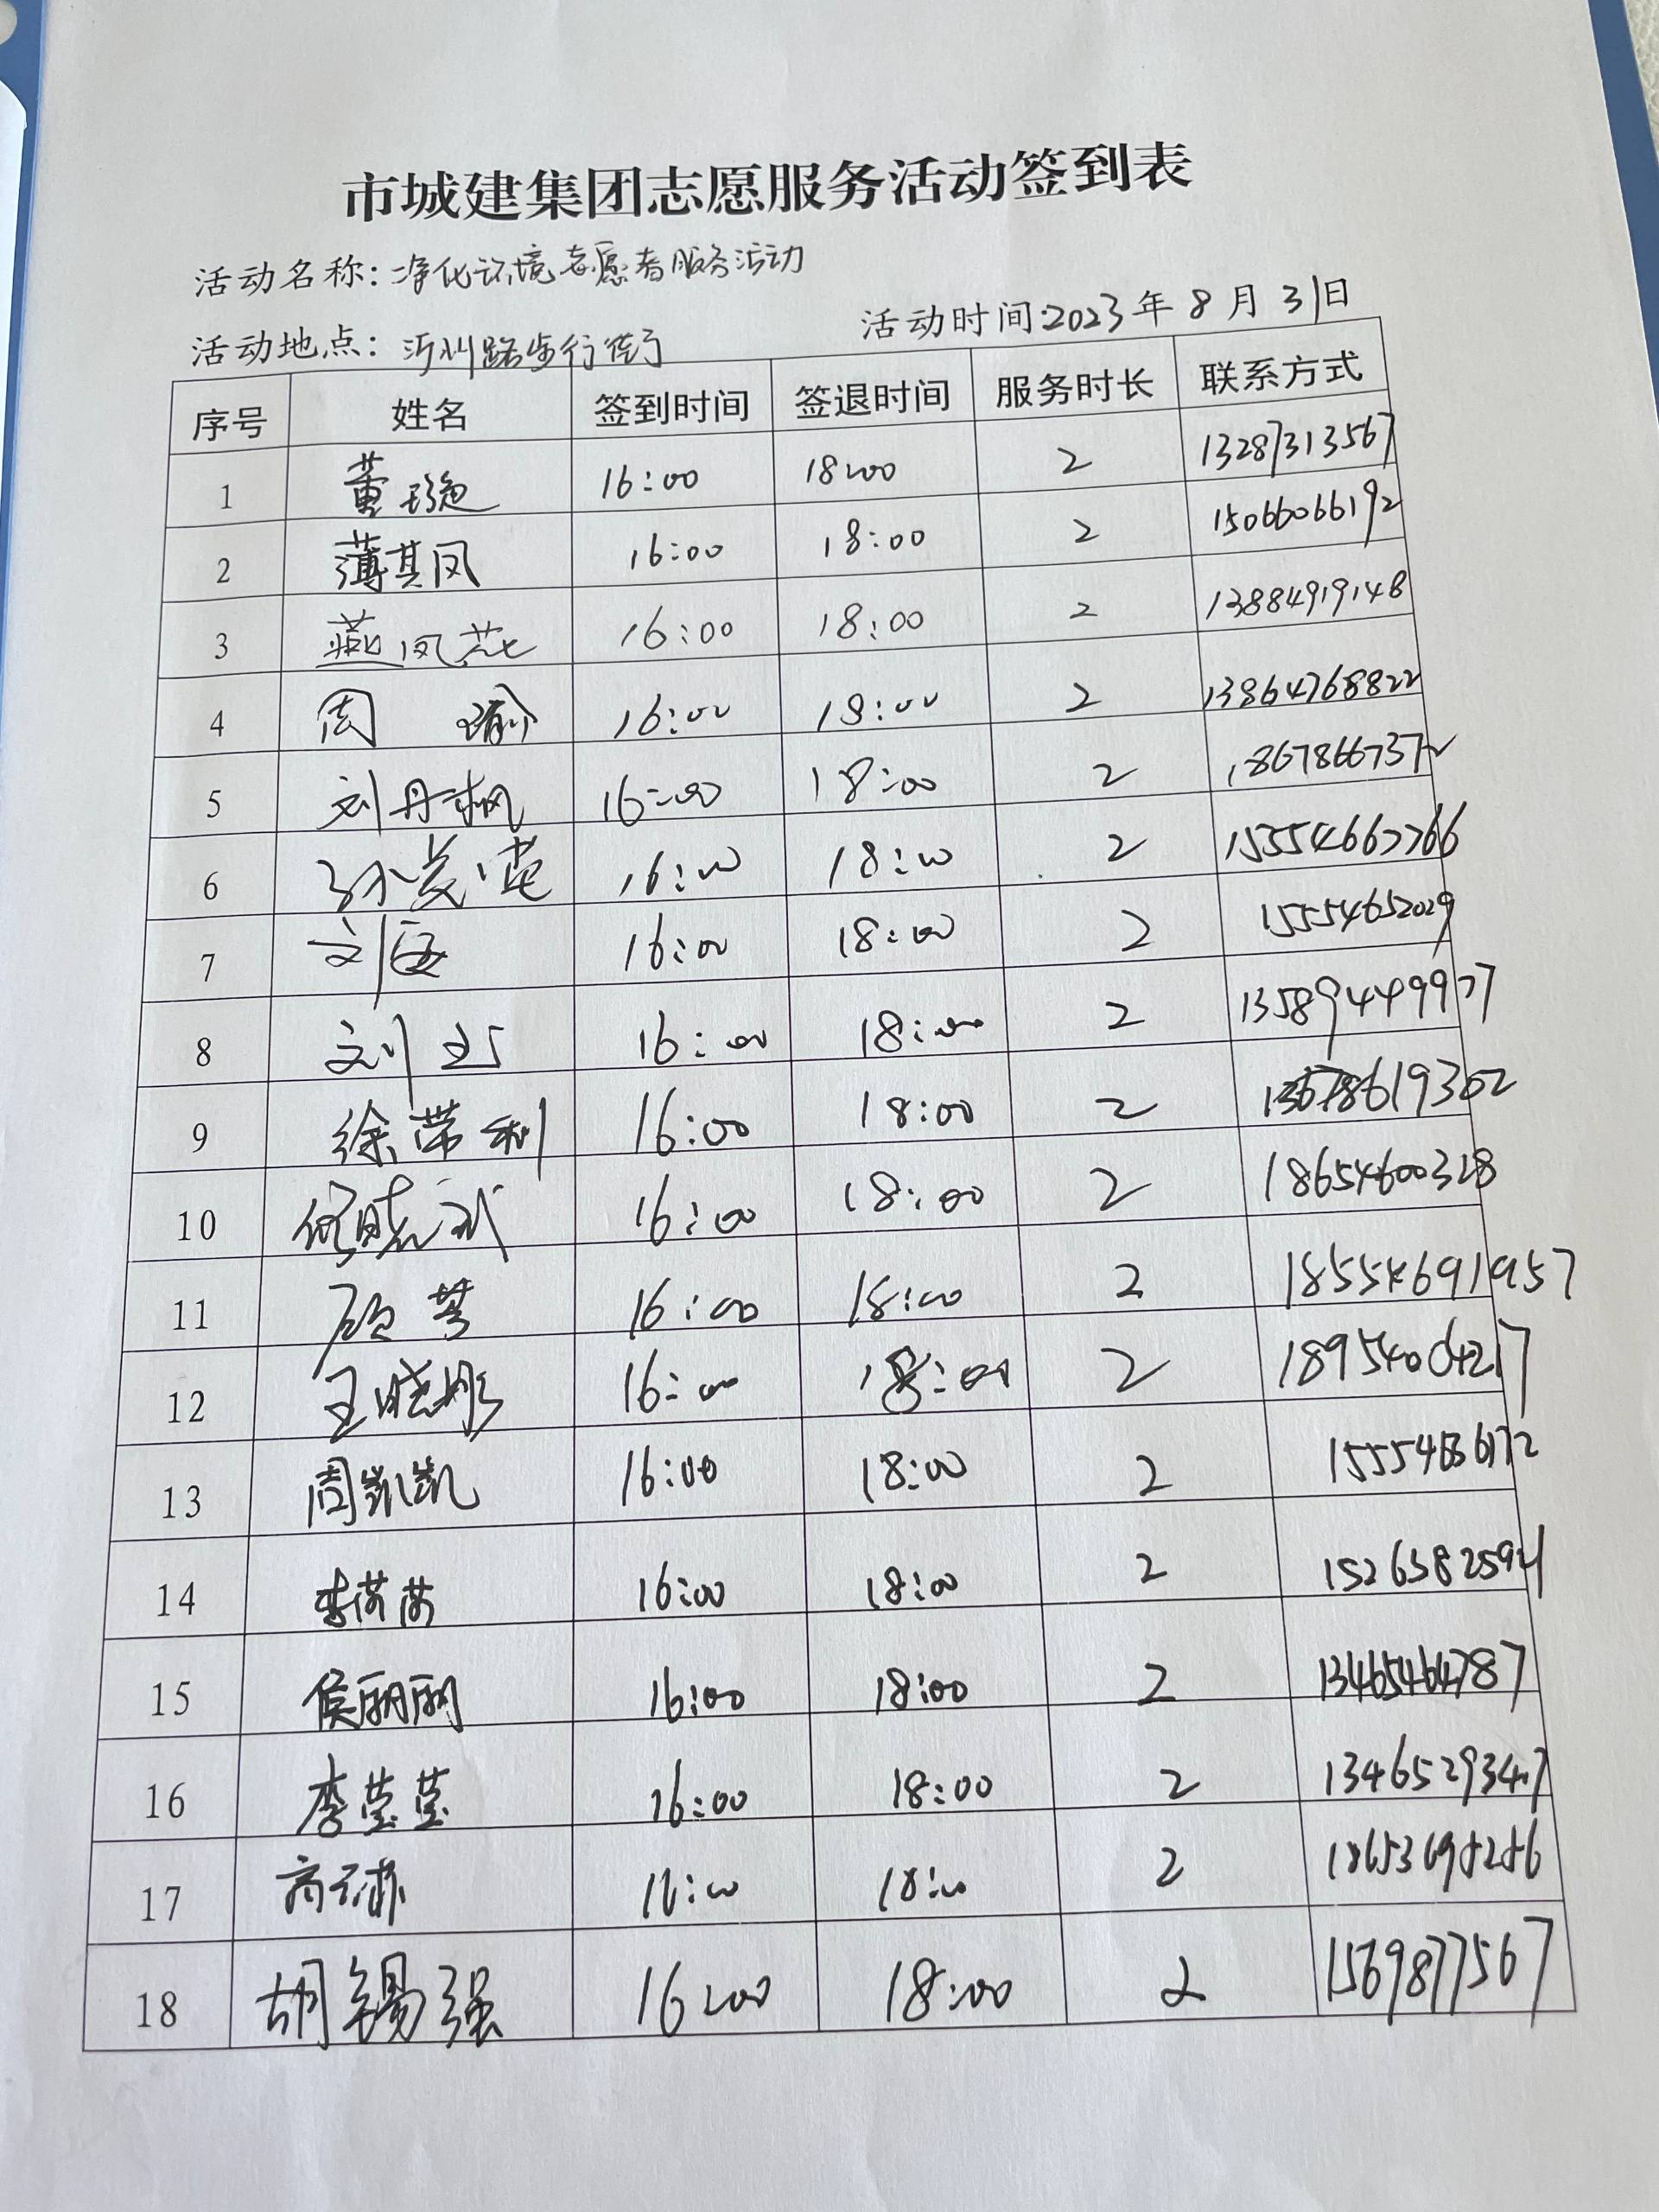 市城建集团志愿服务活动签到表
活动名称：净化环境志愿者服务活动
活动地点：沂州路步行街 活动时间：2023年8月31日
序号 姓名 签到时间 签退时间 服务时长 联系方式
1 董 16:00 18:00 2 13287313567
2 薄其凤 16:00 18:00 2 15066066192
3 燕凤芝 16:00 18:00 2 13884919148
4 周瑜 16:00 18:00 2 13864768822
5 刘丹枫 16:00 18:00 2 18678667372
6 孙 16:00 18:00 2 15554667766
7 刘 16:00 18:00 2 15554652029
8 刘 16:00 18:00 2 13589449977
9 徐荣利 16:00 18:00 2
10 16:00 18:00 2 18654600328
11 顾芳 16:00 18:00 2 18554691957
12 王晓彬 16:00 18:00 2 18954004217
13 周凯凯 16:00 18:00 2
14 李 16:00 18:00 2
15 侯丽丽 16:00 18:00 2 13465464787
16 李莹莹 16:00 18:00 2 13465293407
17 商 16:00 18:00 2 18653695256
18 胡锡强 16:00 18:00 2 15698777567